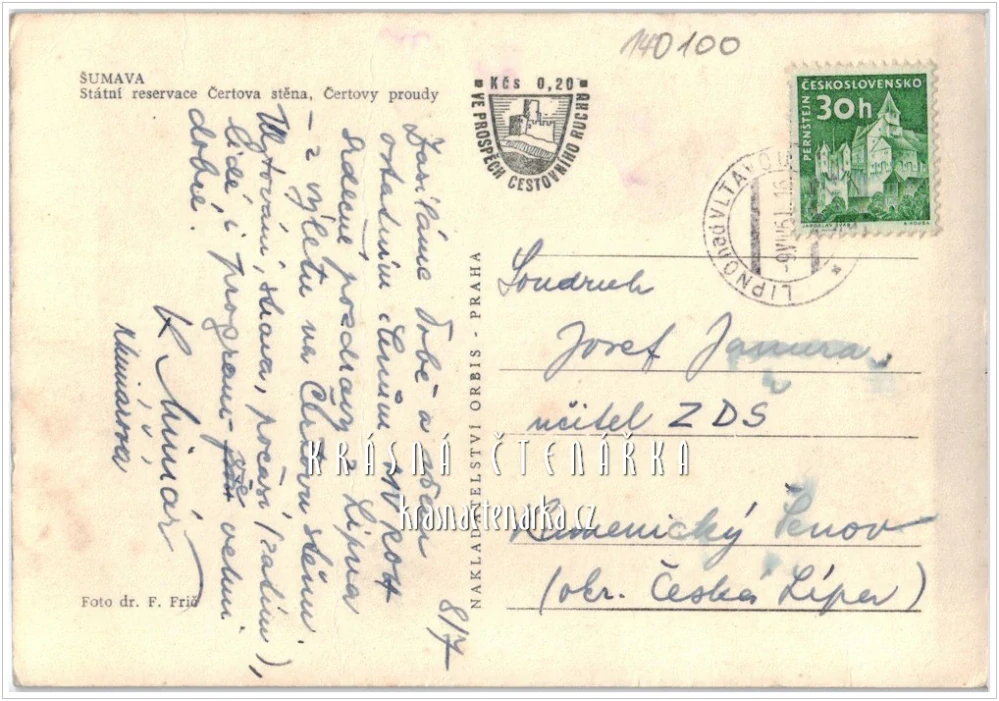 140100
ŠUMAVA
Státní reservace Čertova stěna, Čertovy proudy
Kčs 0,20
VE PROSPĚCH CESTOVNÍHO RUCHU
ČESKOSLOVENSKO
30h
PERNŠTEJN
LIPNO nad VLTAVOU
-9.VII.61.16
8/7
Zasíláme Tobě a všem
ostatním členům
srdečné pozdravy z Lipna
- z výletu na Čertovu stěnu.
Ubytování, strava, počasí (zatím),
lidé i program - vše velmi
dobré.
K Minář
Minářová
Foto dr. F. Frič
NAKLADATELSTVÍ ORBIS - PRAHA
Soudruh
Josef Janura
učitel ZDŠ
Kamenický Šenov
(okr. Česká Lípa)
KRÁSNÁ ČTENÁŘKA
krasnactenarka.cz